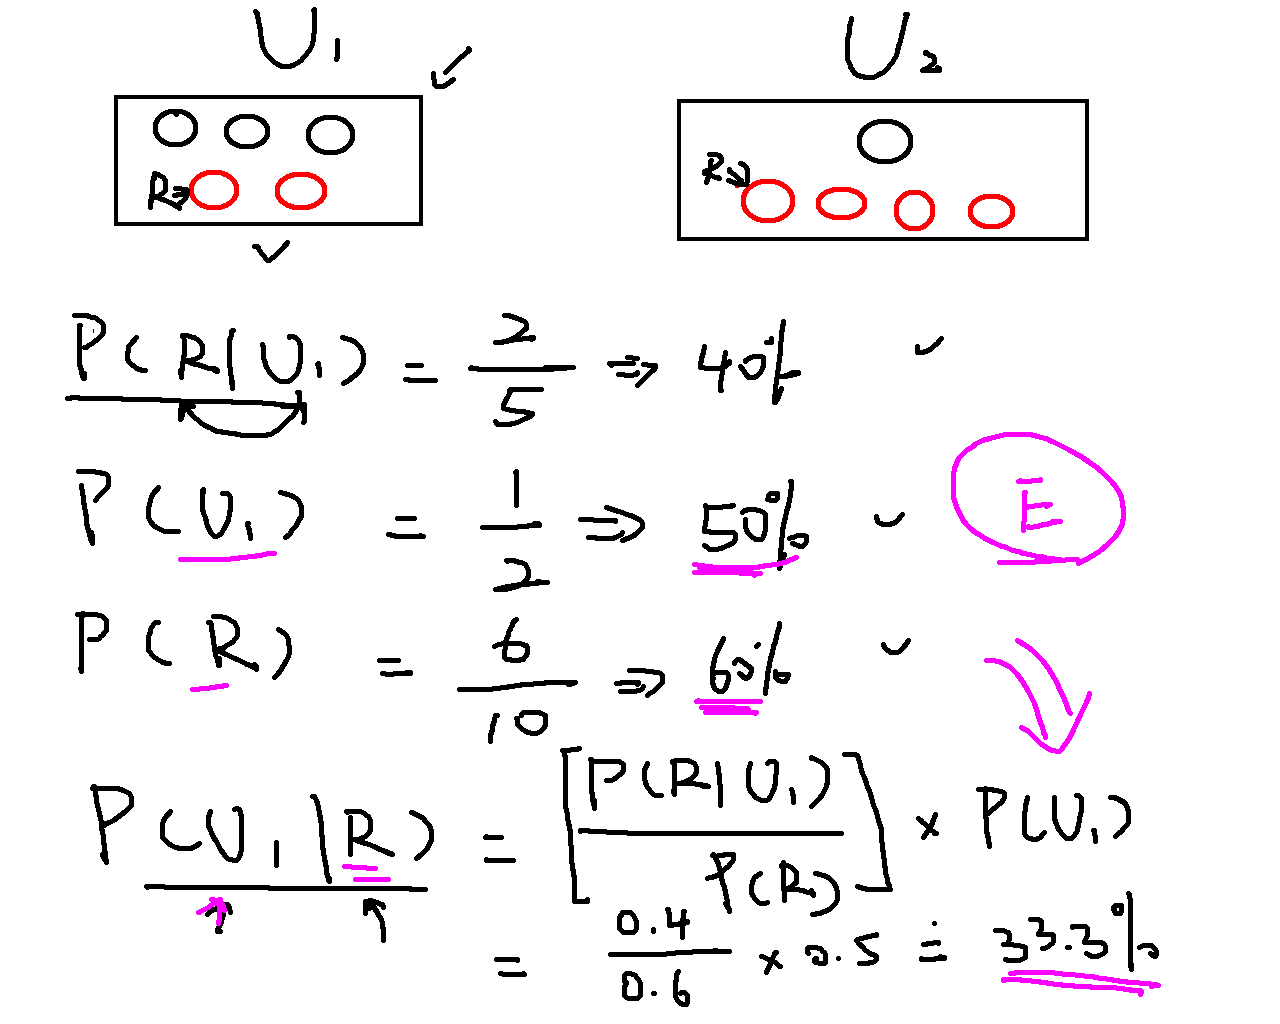 U₁ U₂
R R
P(R|U₁) = 2/5 ⇒ 40%
P(U₁) = 1/2 ⇒ 50% E
P(R) = 6/10 ⇒ 60%
P(U₁|R) = [P(R|U₁)/P(R)] × P(U₁)
= 0.4/0.6 × 0.5 ≐ 33.3%